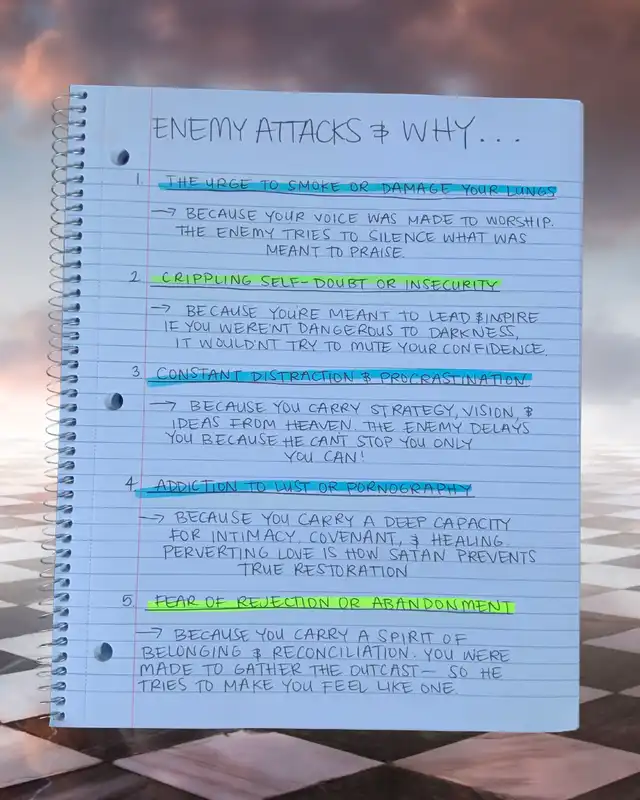 ENEMY ATTACKS & WHY...
1. THE URGE TO SMOKE OR DAMAGE YOUR LUNGS
→ BECAUSE YOUR VOICE WAS MADE TO WORSHIP.
THE ENEMY TRIES TO SILENCE WHAT WAS
MEANT TO PRAISE.
2. CRIPPLING SELF-DOUBT OR INSECURITY
→ BECAUSE YOU'RE MEANT TO LEAD & INSPIRE
IF YOU WEREN'T DANGEROUS TO DARKNESS,
IT WOULDN'T TRY TO MUTE YOUR CONFIDENCE.
3. CONSTANT DISTRACTION & PROCRASTINATION
→ BECAUSE YOU CARRY STRATEGY, VISION, &
IDEAS FROM HEAVEN. THE ENEMY DELAYS
YOU BECAUSE HE CAN'T STOP YOU ONLY
YOU CAN!
4. ADDICTION TO LUST OR PORNOGRAPHY
→ BECAUSE YOU CARRY A DEEP CAPACITY
FOR INTIMACY, COVENANT, & HEALING.
PERVERTING LOVE IS HOW SATAN PREVENTS
TRUE RESTORATION
5. FEAR OF REJECTION OR ABANDONMENT
→ BECAUSE YOU CARRY A SPIRIT OF
BELONGING & RECONCILIATION. YOU WERE
MADE TO GATHER THE OUTCAST— SO HE
TRIES TO MAKE YOU FEEL LIKE ONE.